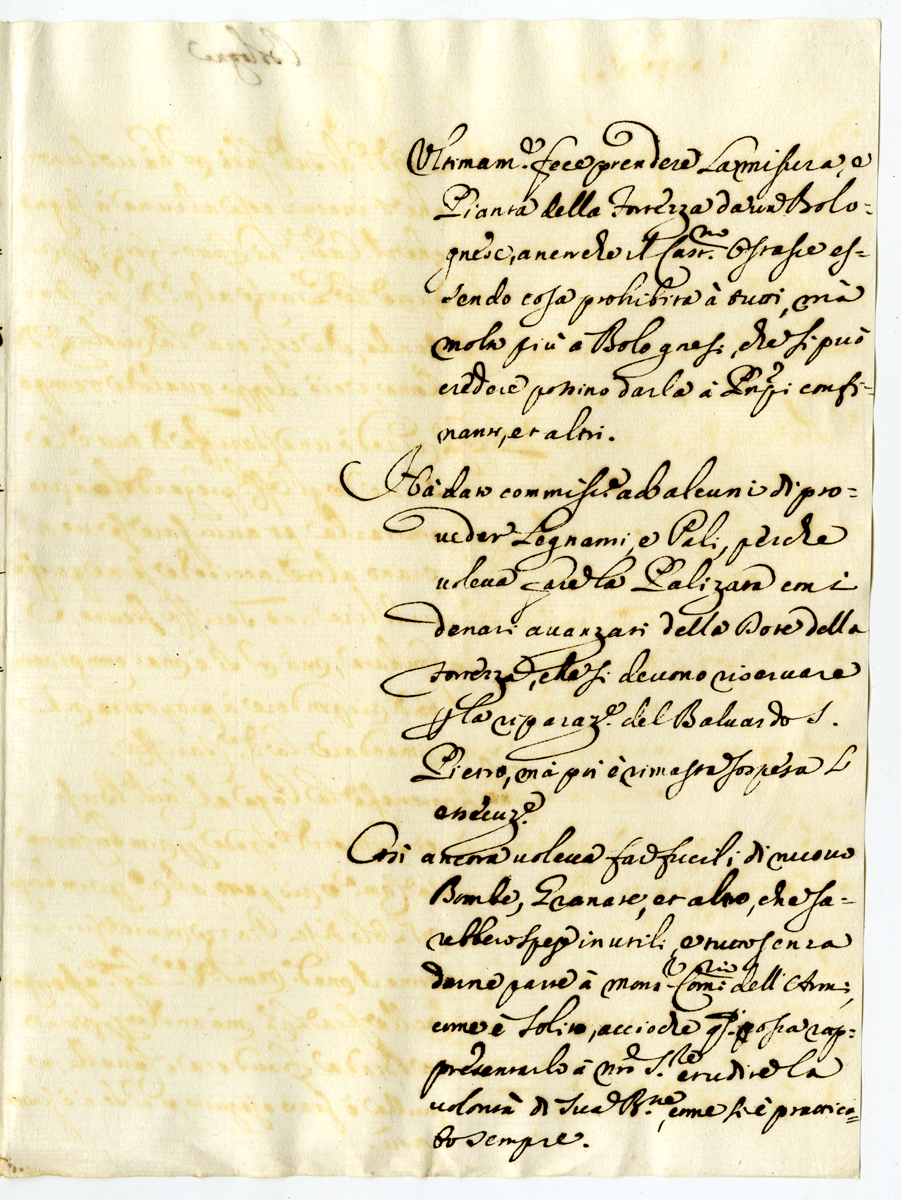 Ultimam.te fece prendere la misura, e
Pianta della Fortezza da un Bolo=
gnese, ancorche il Cast.no Ostasse es=
sendo cosa prohibita à tutti, mà
molto più a Bolognesi, che si può
credere possino darla à Pnpi confi=
nanti, et altri.
Hà dato commiss.e ad alcuni di pro=
veder Legnami, e Pali, perche
voleva far la Palizata con i
denari avanzati della Dote della
Fortezza, che si devono riservare
p la riparaz.e del Baluardo S.
Pietro, mà poi è rimasta sospesa l
essecuz.e
Così ancora voleva far fucili, di nuovo
Bombe, Granate, et altro, che sa=
rebbero spese inutili, e tutto senza
darne parte à Mons.r Com.rio dell' Armi,
come è solito, accioche qsi possa rap=
presentarlo à nr̃o S.re et udire la
volontà di Sua B.ne, come si è prattica=
to sempre.